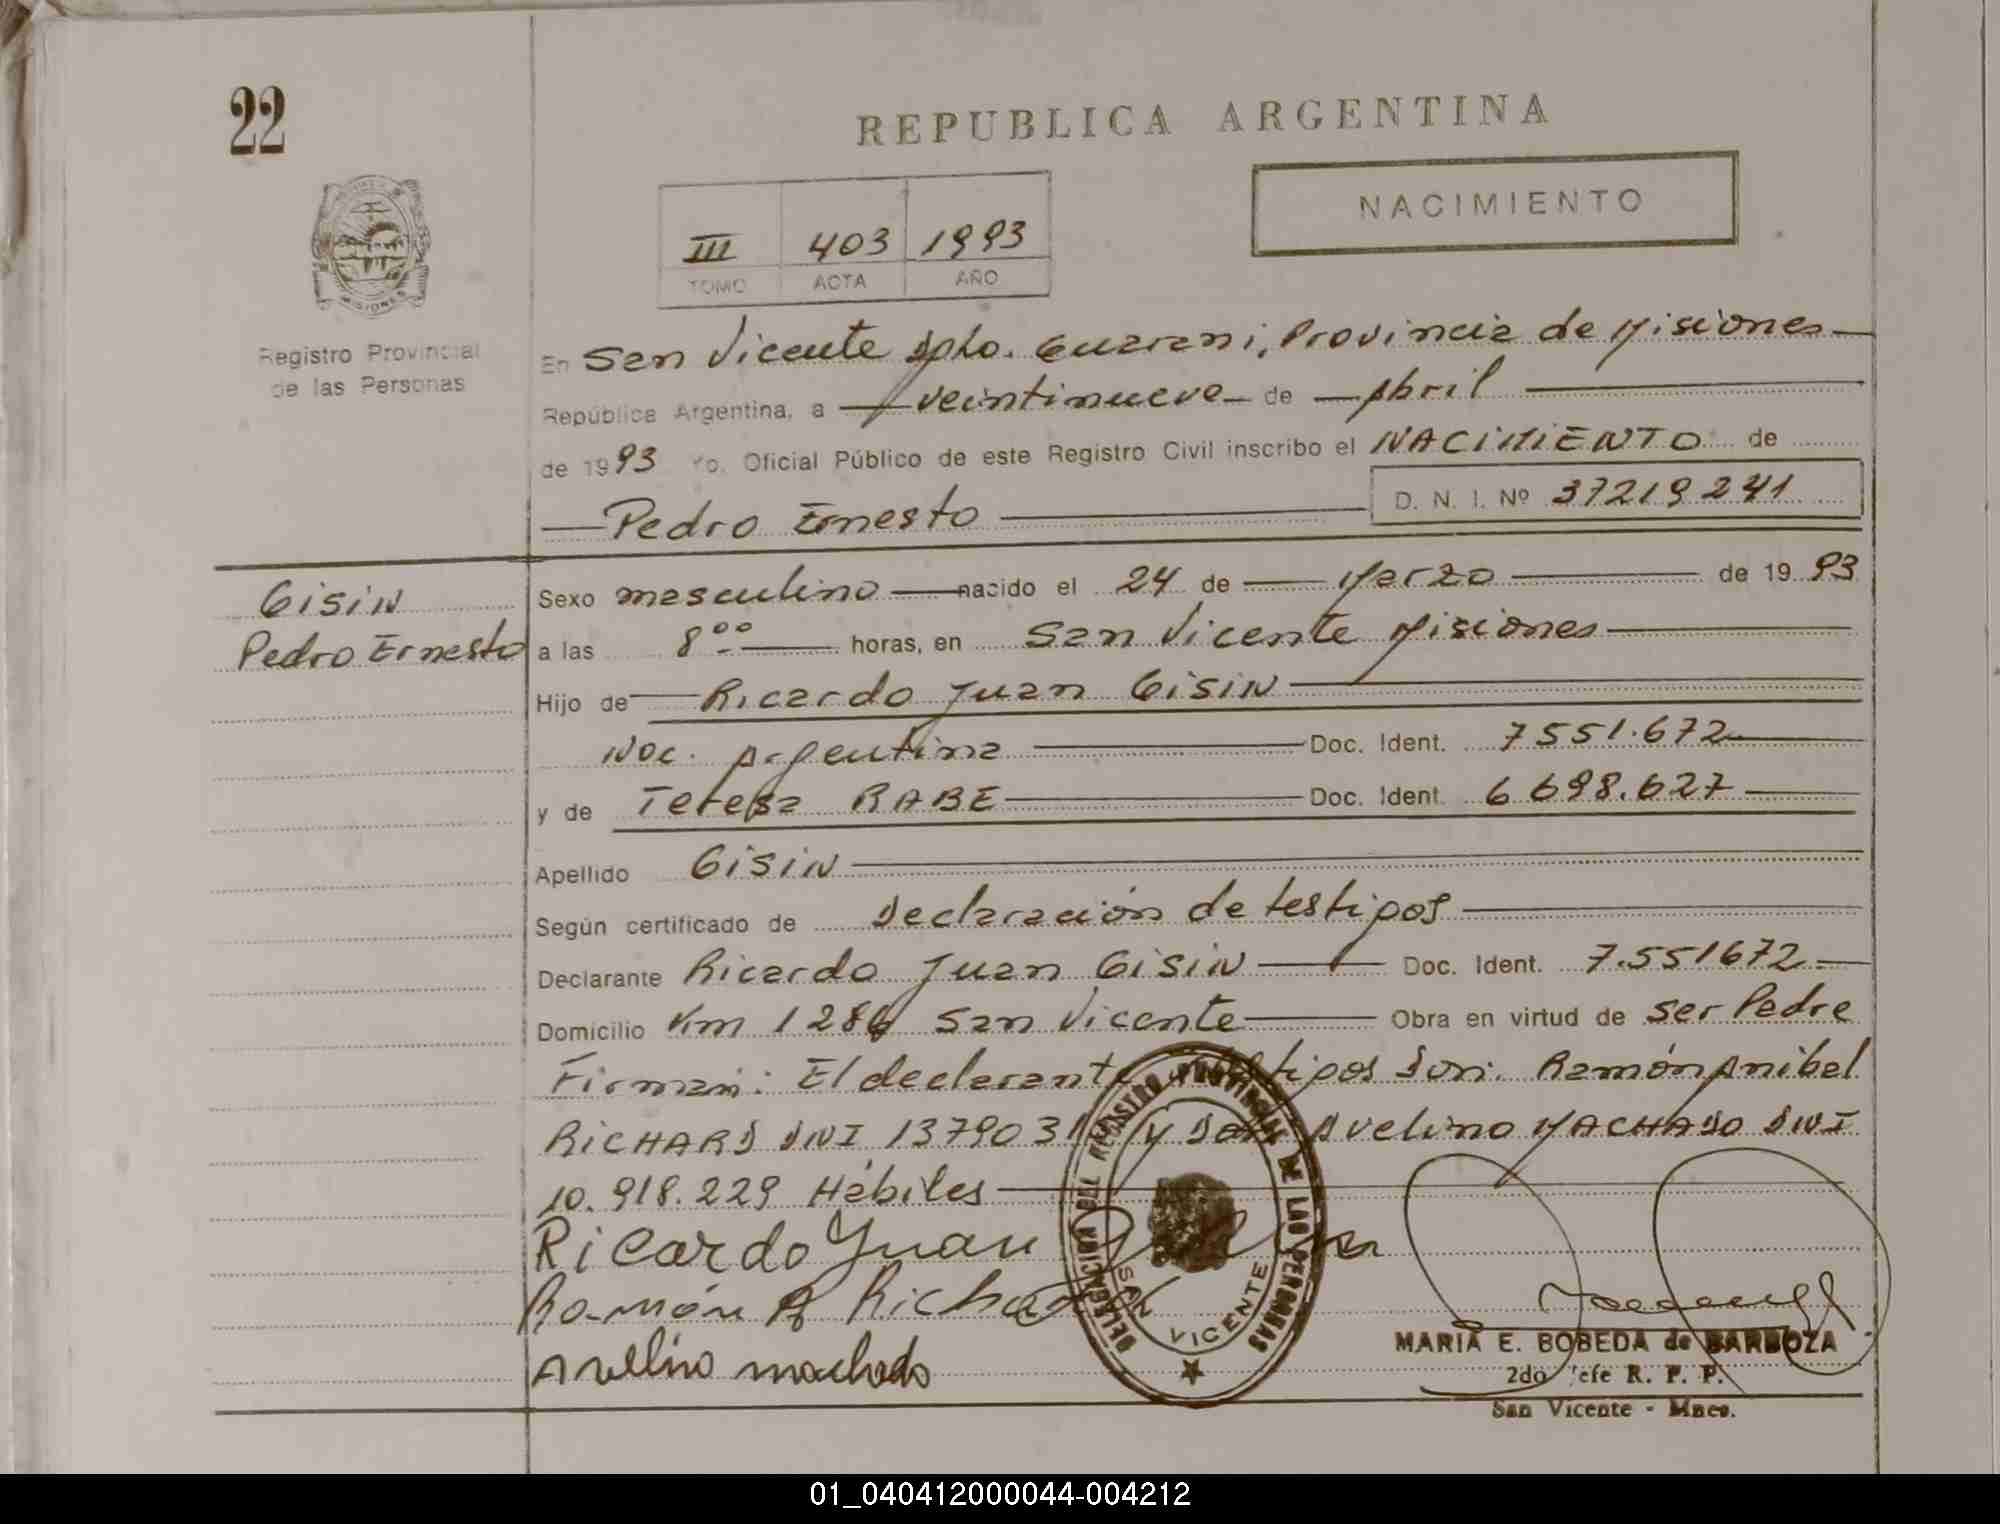 22
REPUBLICA ARGENTINA
NACIMIENTO
III 403 1993
TOMO ACTA AÑO
MISIONES
Registro Provincial
de las Personas
En San Vicente Dpto. Guarani, Provincia de Misiones
República Argentina, a veintinueve de Abril
de 1993 Yo, Oficial Público de este Registro Civil inscribo el NACIMIENTO de
Pedro Ernesto D. N. I. Nº 37219241
GISIN
Pedro Ernesto
Sexo masculino nacido el 24 de Marzo de 1993
a las 8 00 horas, en San Vicente Misiones
Hijo de Ricardo Juan GISIN
Nac. Argentina Doc. Ident. 7551.672
y de Teresa RABE Doc. Ident. 6698.627
Apellido GISIN
Según certificado de Declaración de testigos
Declarante Ricardo Juan GISIN Doc. Ident. 7.551672
Domicilio Km 1286 San Vicente Obra en virtud de ser Padre
Firman: El declarante testigos Don: Ramón Anibal
RICHARD DNI 1379031 y Don Avelino MACHADO DNI
10.918.229 Hábiles
Ricardo Juan
Ramón A Richard
Avelino machado
DELEGACION DEL REGISTRO PROVINCIAL DE LAS PERSONAS
SAN VICENTE
MARIA E. BOBEDA de BARBOZA
2do Jefe R. P. P.
San Vicente - Mnes.
01_040412000044-004212